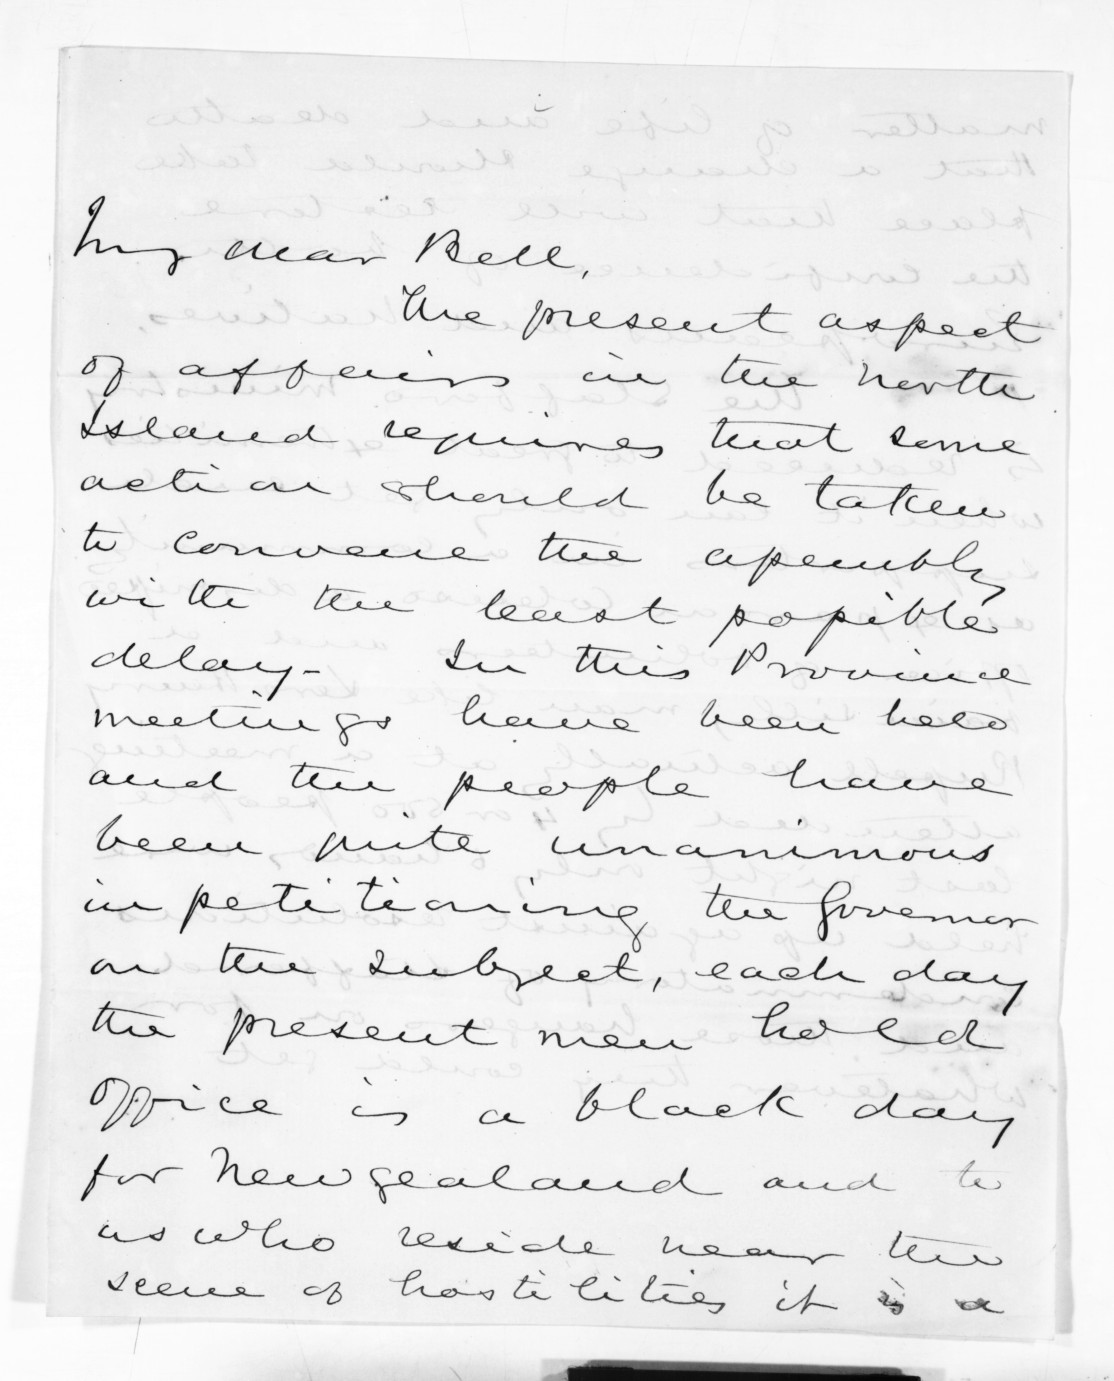 My dear Bell,
The present aspect
of affairs in the North
Island requires that some
action should be taken
to convene the assembly
with the least possible
delay. In this Province
meetings have been held
and the people have
been quite unanimous
in petitioning the Governor
on the subject, each day
the present men hold
office is a black day
for New Zealand and to
us who reside near the
scene of hostilities it is a